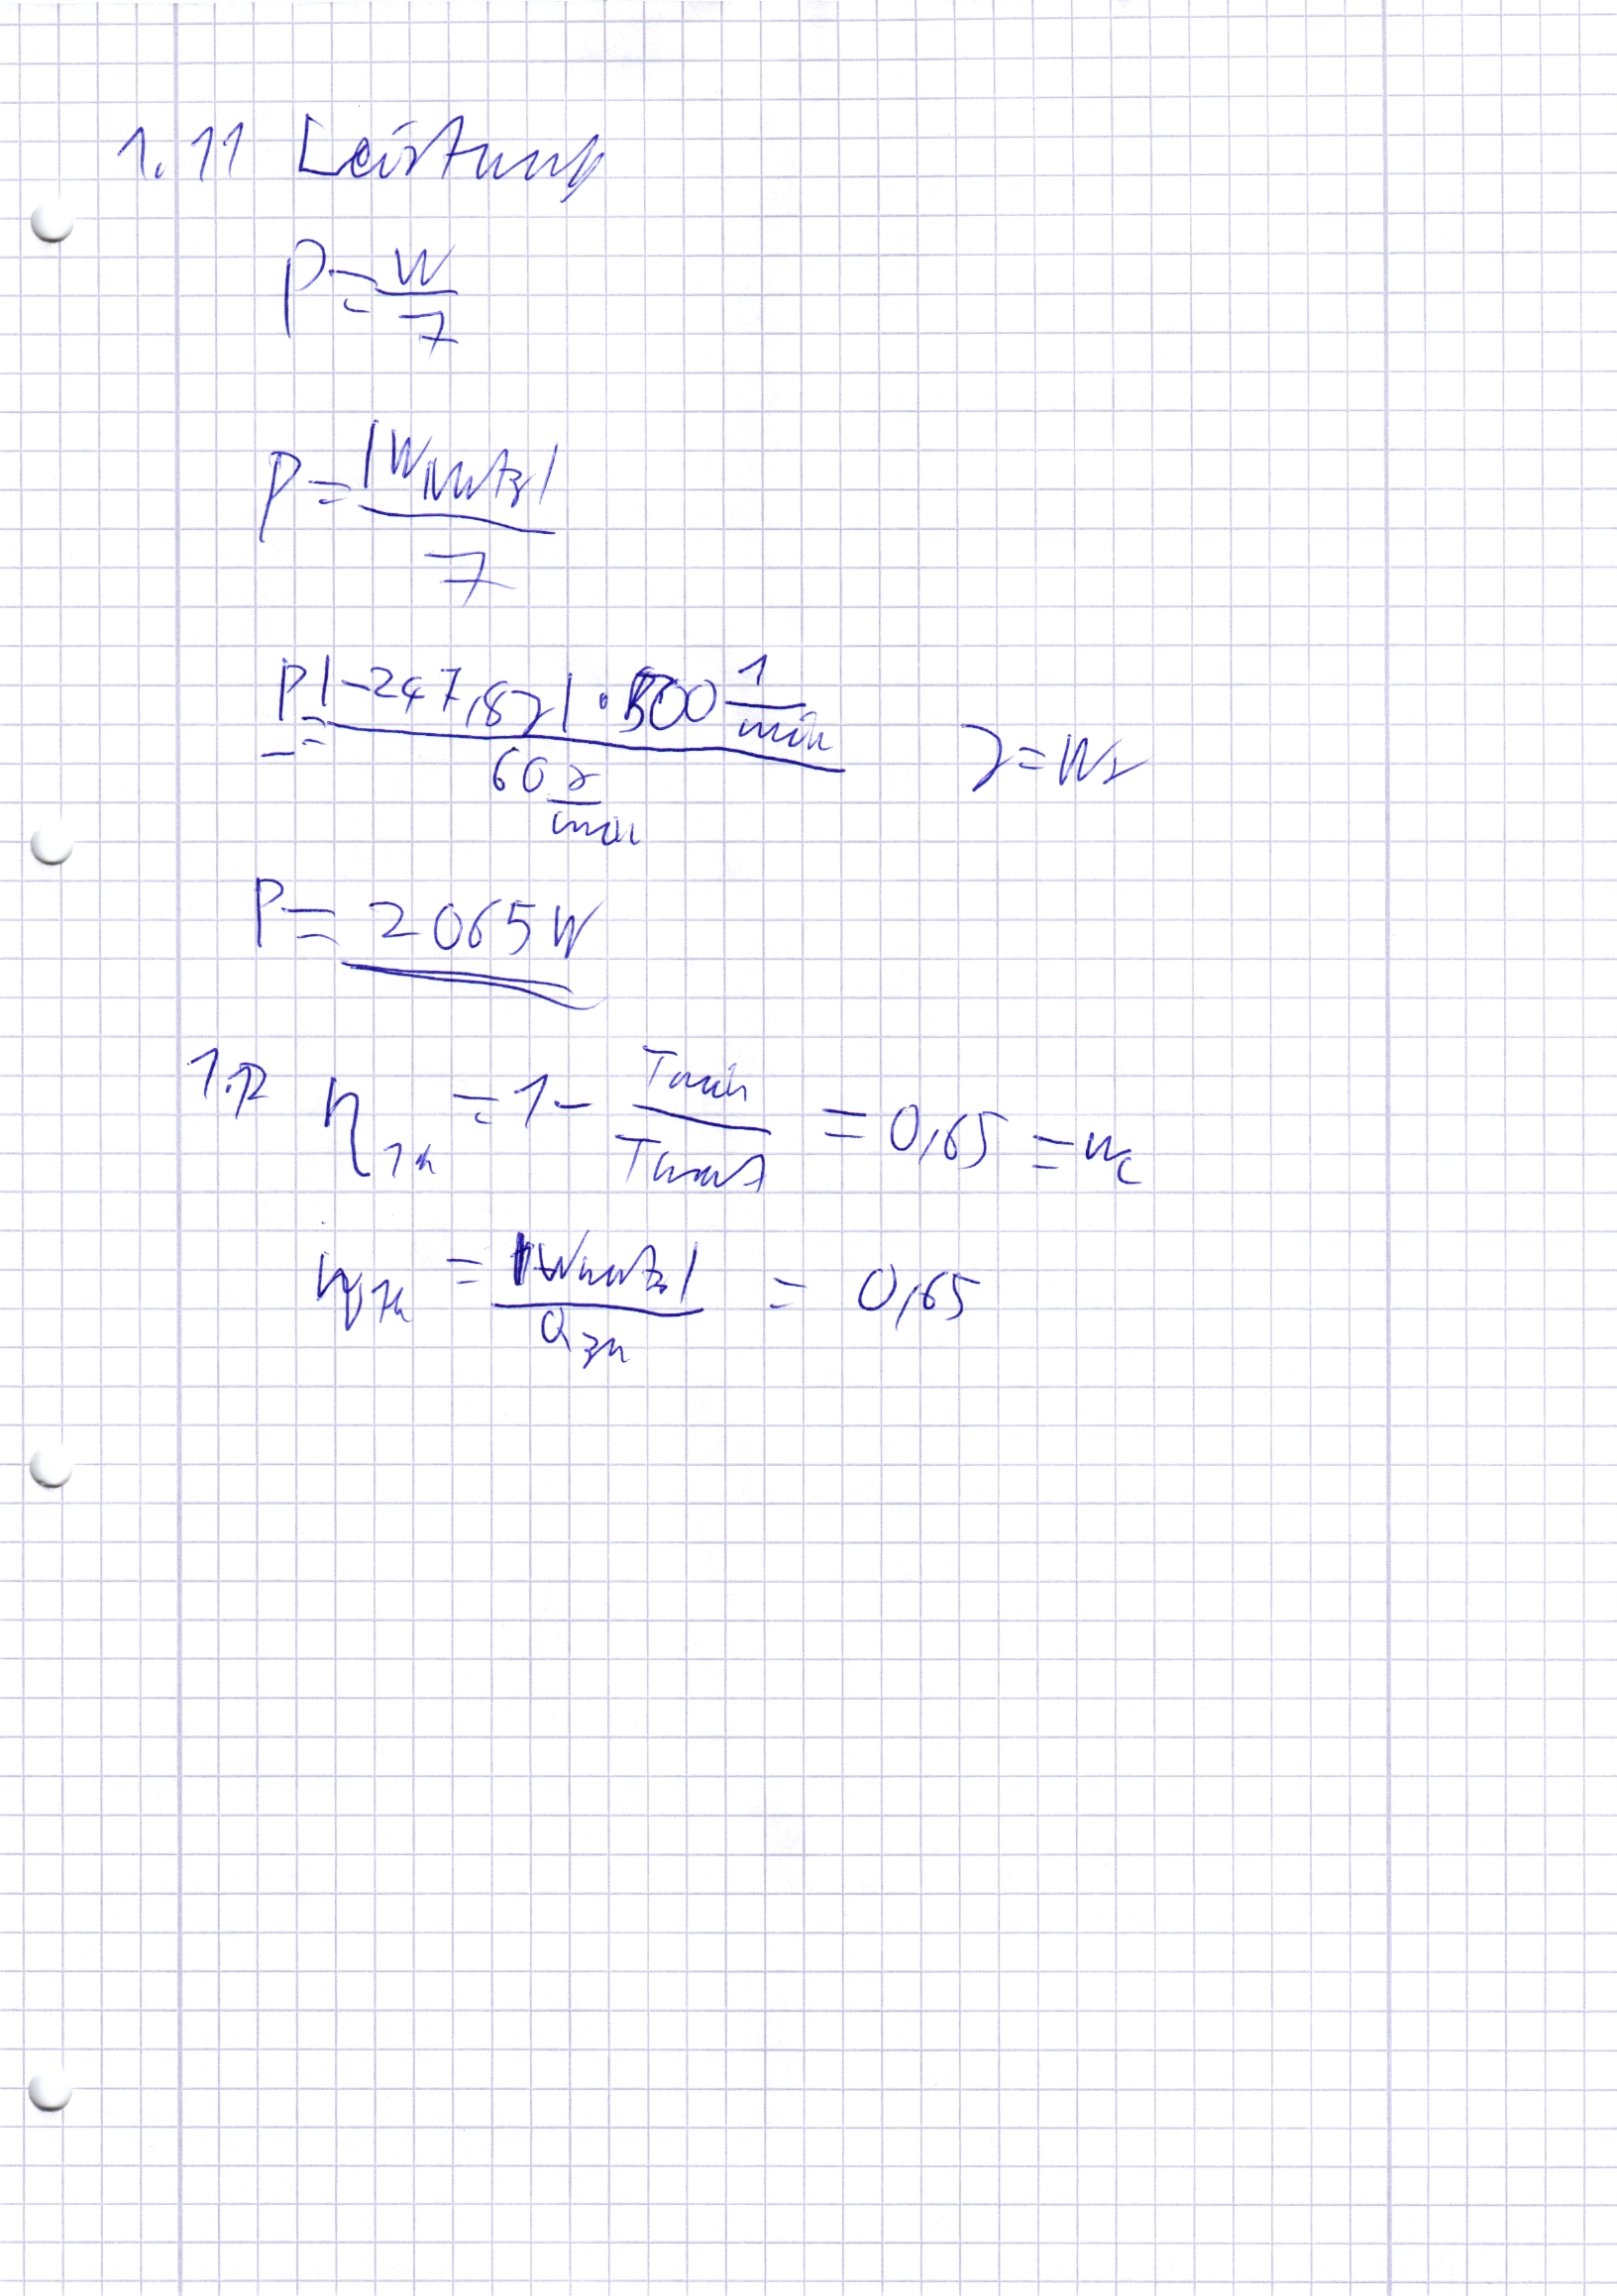 1.11 Leistung
P = W / 7
P = |W Nutz| / 7
P = |-247,8J| · 500 1/min / 60 s/min J = Ws
P = 2065 W
1.12 η Th = 1 - Tmin / Tmax = 0,65 = ηc
ηTh = |W nutz| / Q zu = 0,65